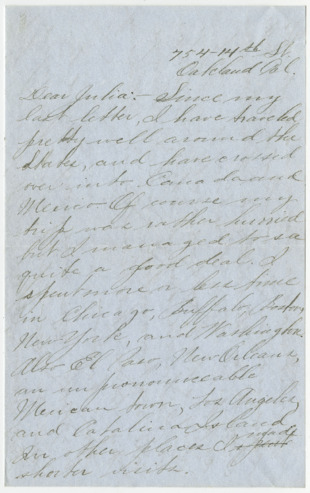 754-14th St.
Oakland Cal.
Dear Julia:- Since my
last letter, I have traveled
pretty well around the
States, and have crossed
over into Canada and
Mexico. Of course my
trip was rather hurried
but I managed to see
quite a good deal. I
spent more or less time
in Chicago, Buffalo, Boston,
New York, and Washington.
Also El Paso, New Orleans,
an unpronounceable
Mexican town, Los Angeles,
and Catalina Island.
In other places I made
shorter visits.